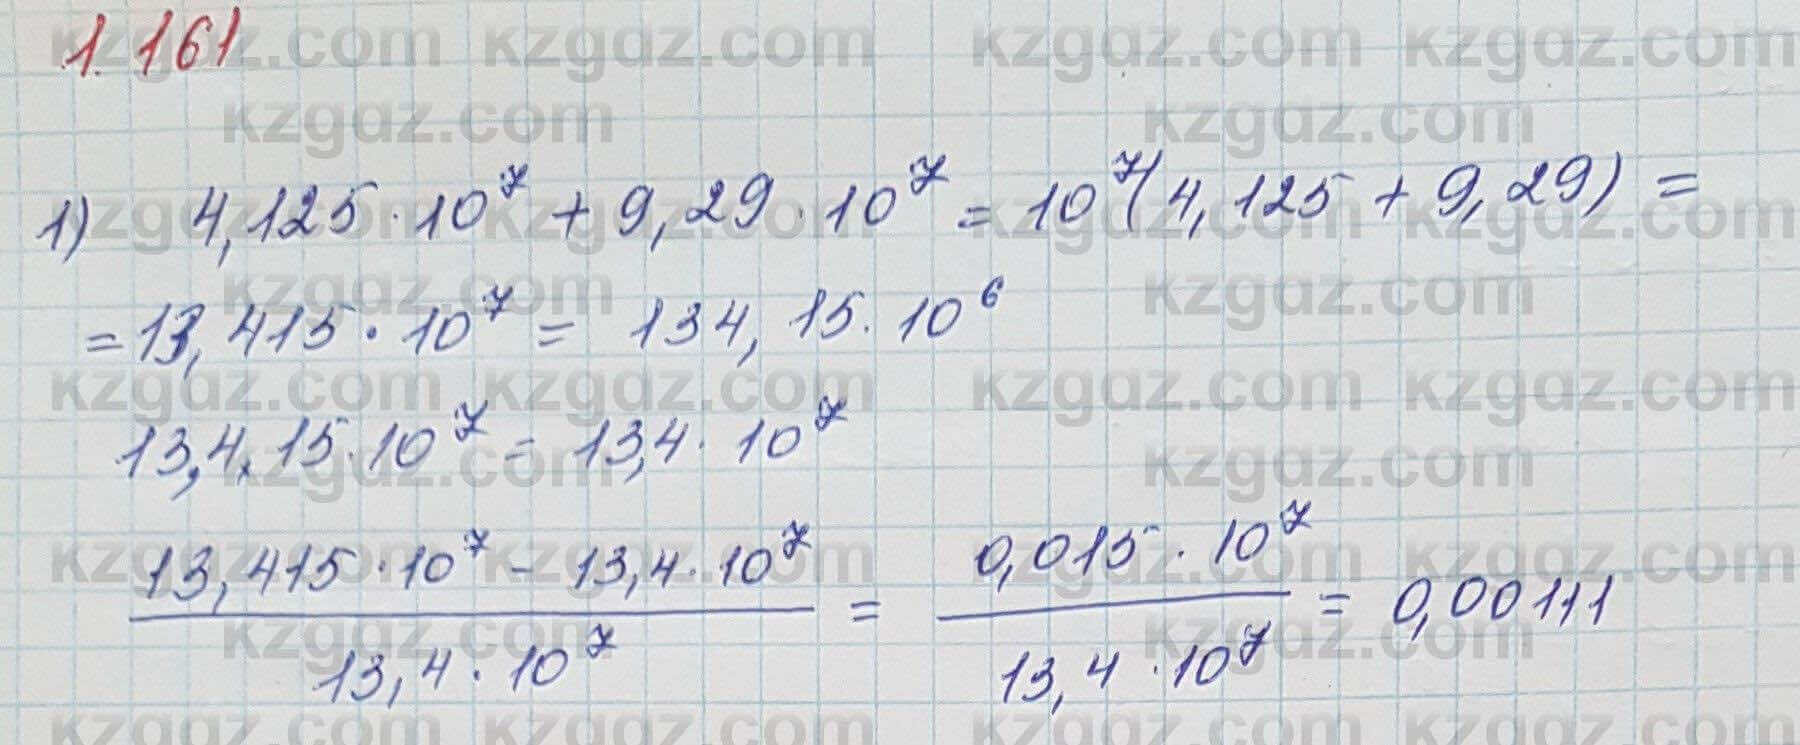 1.161
1) 4,125 · 10⁷ + 9,29 · 10⁷ = 10⁷(4,125 + 9,29) =
= 13,415 · 10⁷ = 134,15 · 10⁶
13,4,15 · 10⁷ = 13,4 · 10⁷
(13,415 · 10⁷ - 13,4 · 10⁷) / (13,4 · 10⁷) = (0,015 · 10⁷) / (13,4 · 10⁷) = 0,00111
kzgdz.com